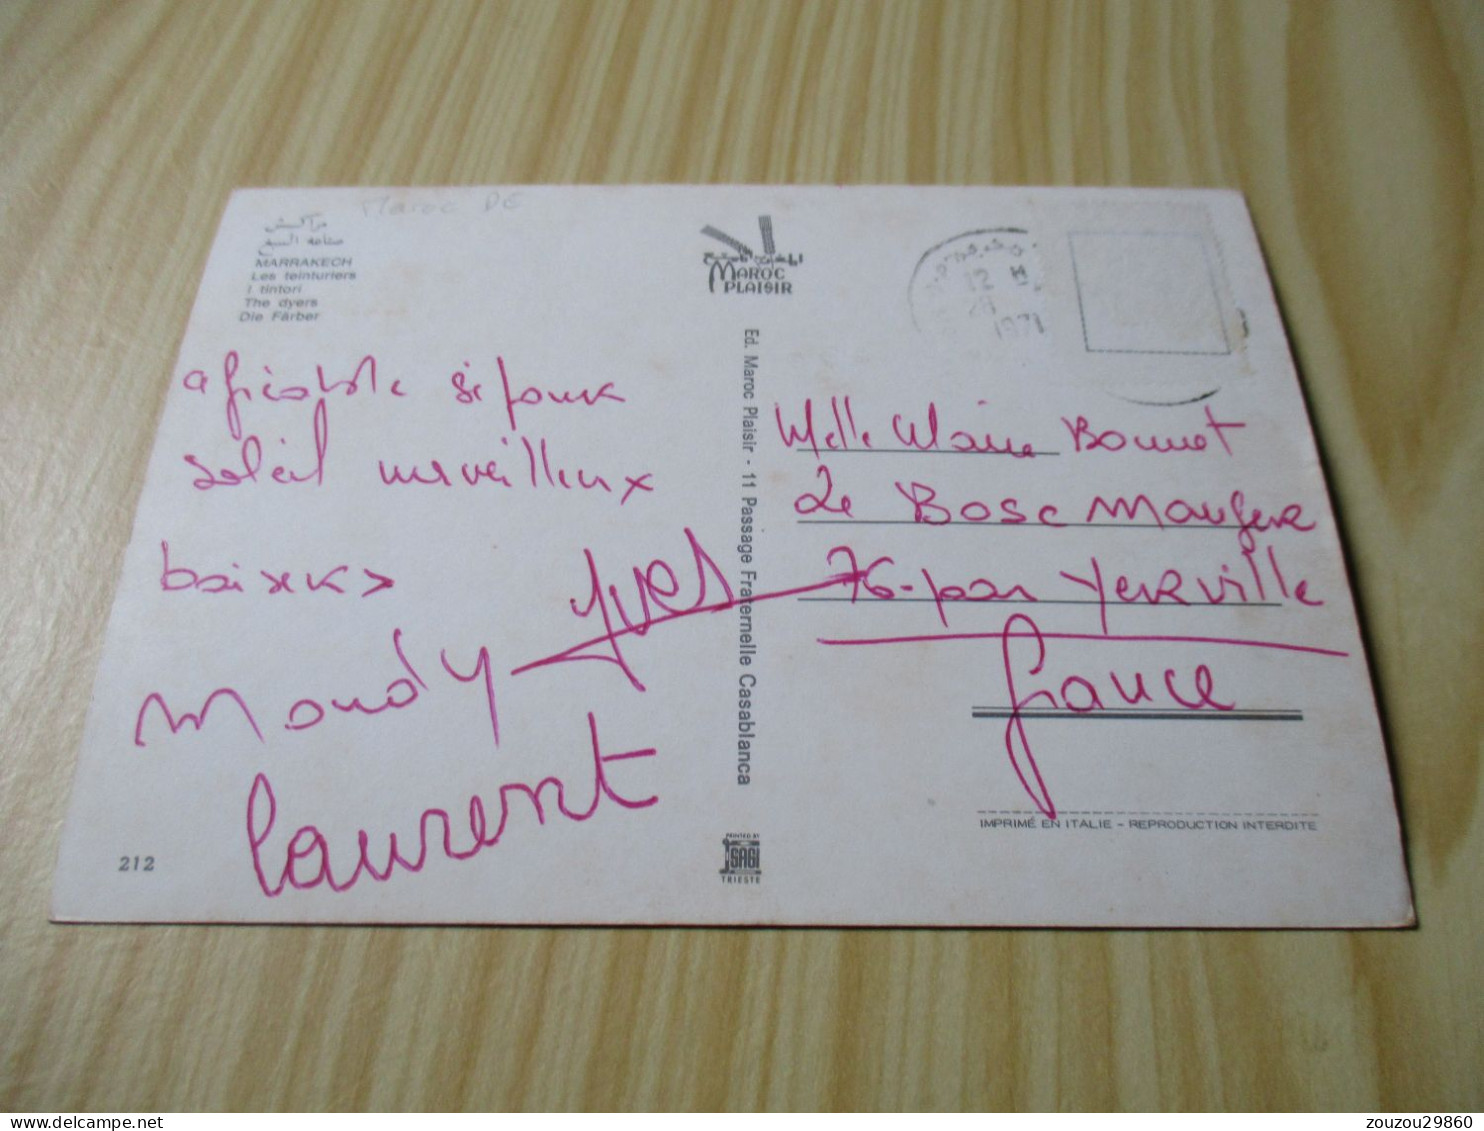 Maroc DE
مراكش
MARRAKECH
Les teinturiers
I tintori
The dyers
Die Färber
MAROC
PLAISIR
12
1971
Ed. Maroc Plaisir - 11 Passage Fraternelle Casablanca
agréable séjour
soleil merveilleux
baisers
Yves
Maudy
Laurent
Melle Claire Bonnet
Le Bosc Mauger
76-par Yerville
France
212
PRINTED BY
SAGI
TRIESTE
IMPRIMÉ EN ITALIE - REPRODUCTION INTERDITE
zouzou29860
delcampe.net